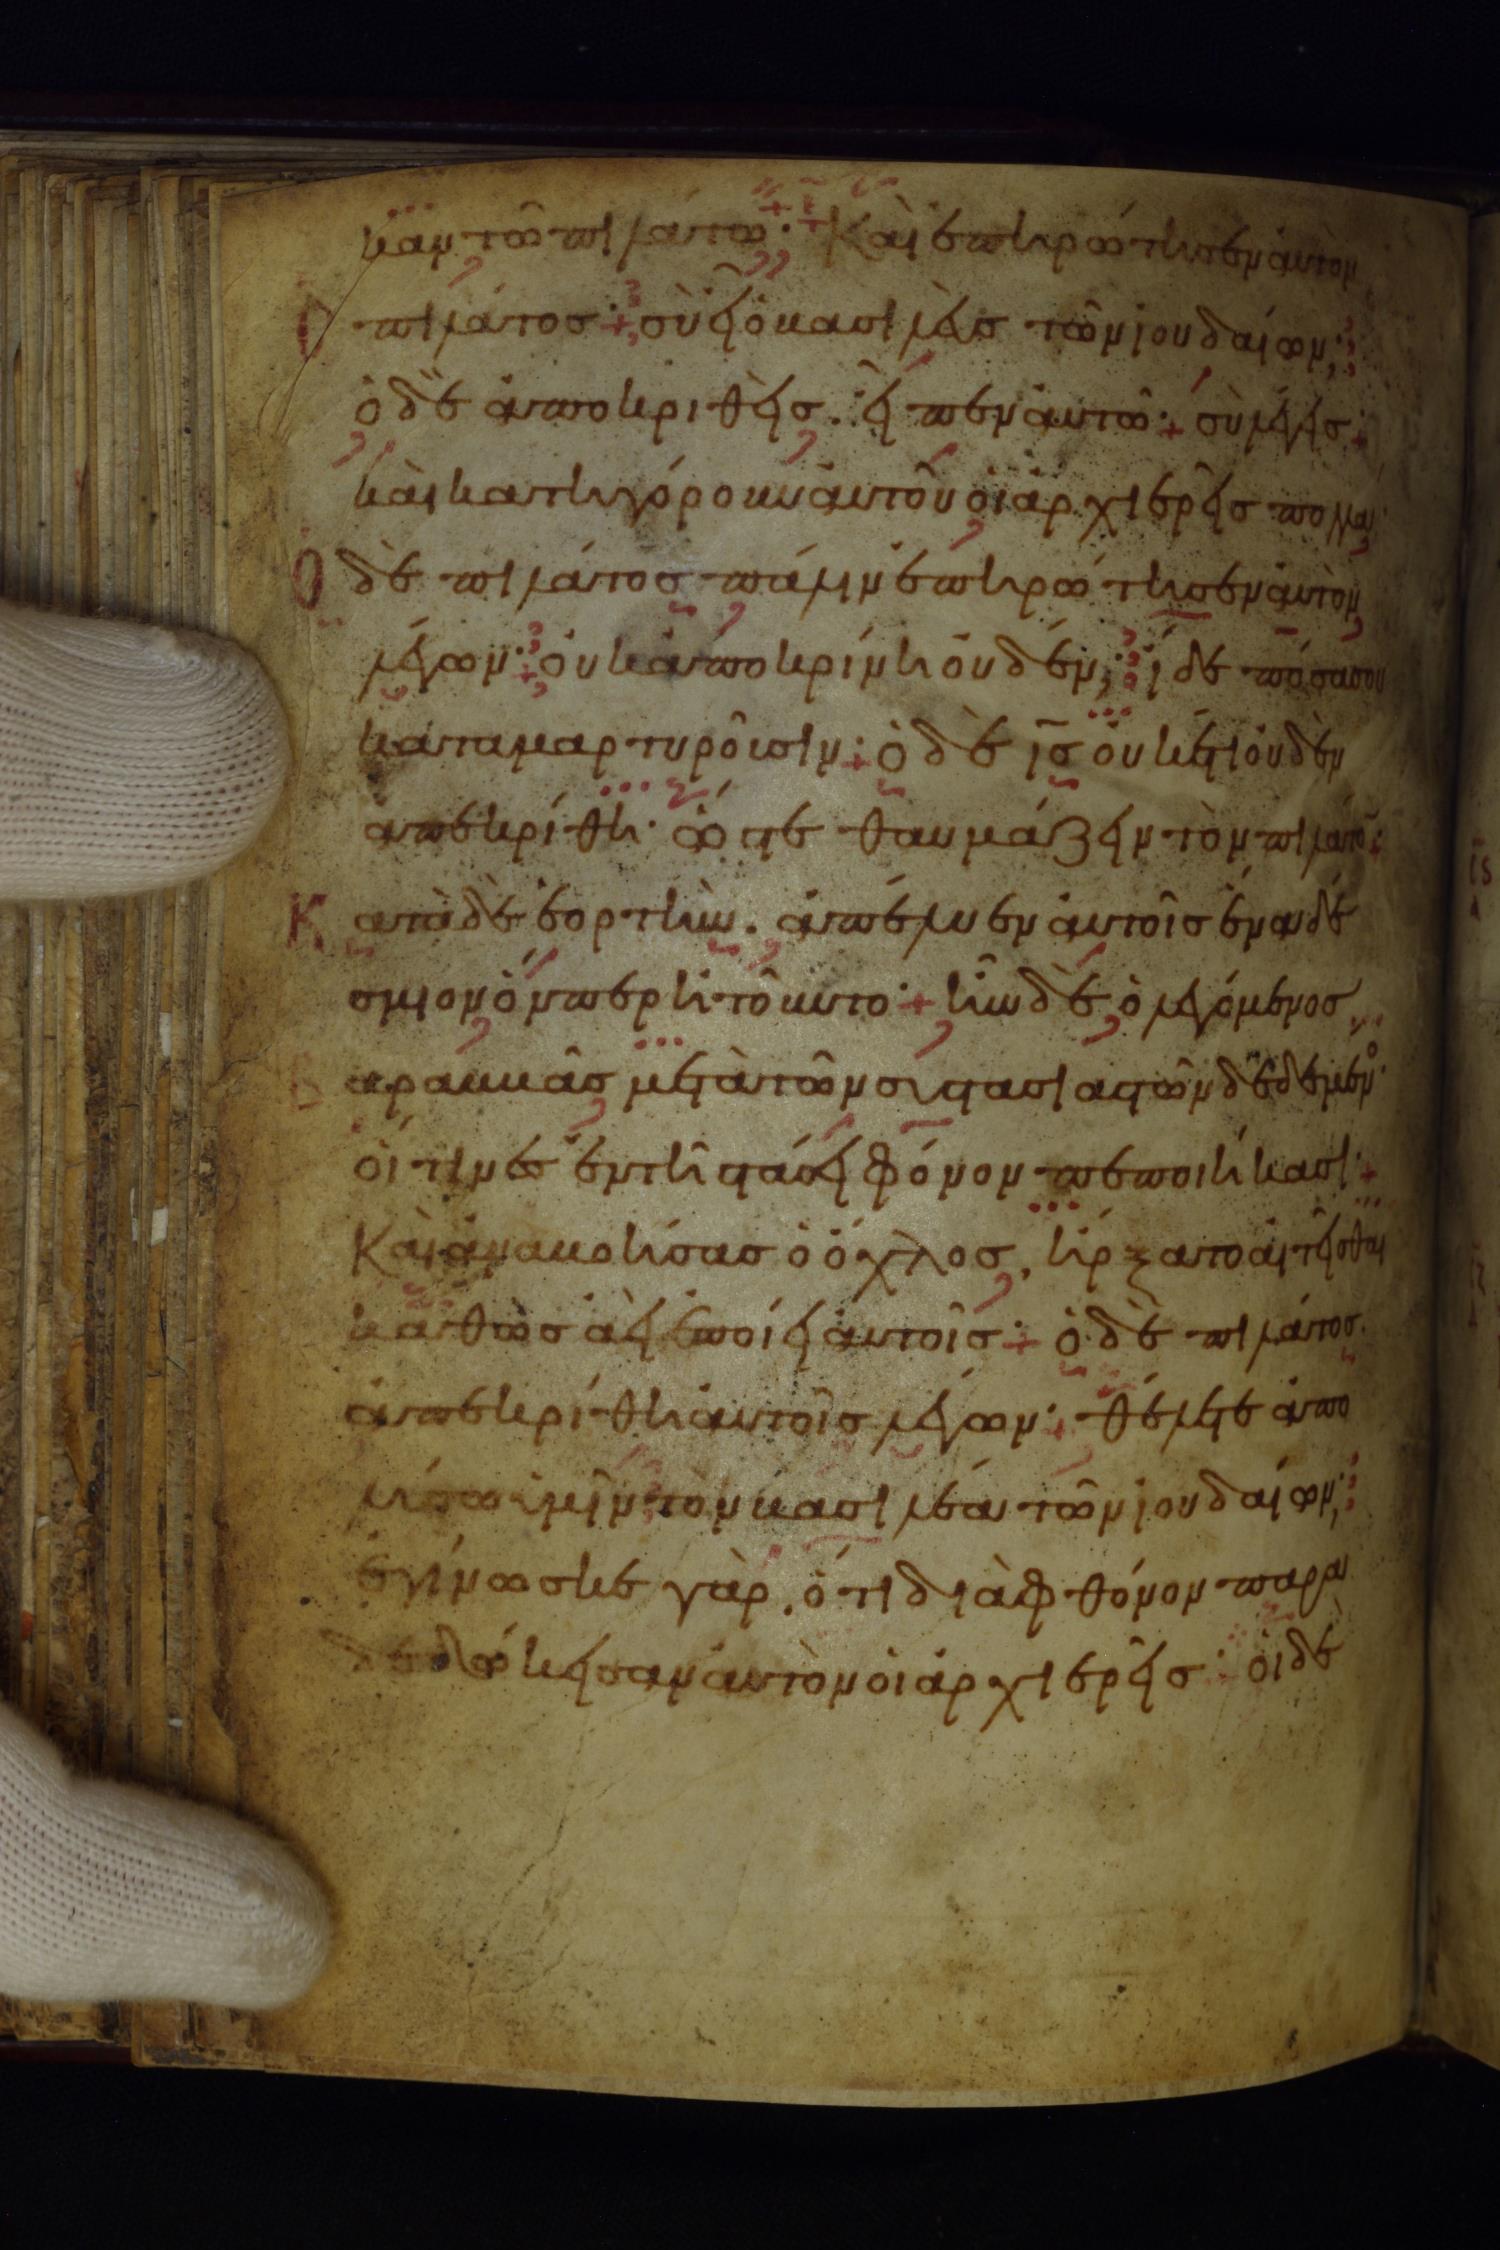 καν τῶ πιλάτω· Καὶ ἐπηρώτησεν ἀυτὸν
ὁ πιλάτος· σὺ εἶ ὁ βασιλεὺς τῶν ἰουδαίων;
ὁ δὲ ἀποκριθεὶς. εἶπεν ἀυτῶ· σὺ λέγεις·
καὶ κατηγόρουν ἀυτοῦ οἱ ἀρχιερεῖς πολλά·
Ὁ δὲ πιλάτος πάλιν ἐπηρώτησεν ἀυτὸν
λέγων· ὀυκ ἀποκρίνη ὀυδέν; ἴδε πόσα σου
καταμαρτυροῦσιν· ὁ δὲ ις ὀυκέτι ὀυδὲν
ἀπεκρίθη· ὥστε θαυμάζειν τὸν πιλάτον·
Κατὰ δὲ ἑορτὴν. ἀπέλυεν ἀυτοῖς ἕνα δέ
σμιον ὅνπερ ἠτοῦντο· ἦν δὲ ὁ λεγόμενος
Βαραββᾶς μετὰ τῶν συστασιαστῶν δεδεμένο
οἵτινες ἐν τῆ στάσει φόνον πεποιήκασι·
Καὶ ἀναβοήσας ὁ ὄχλος, ἤρξατο ἀιτεῖσθαι
καθὼς ἀεὶ ἐποίει ἀυτοῖς· ὁ δὲ πιλάτος
ἀπεκρίθη ἀυτοῖς λέγων· θέλετε ἀπο
λύσω ὑμῖν τὸν βασιλέα τῶν ἰουδαίων;
ἐγίνωσκε γὰρ, ὅτι διὰ φθόνον παρα
δεδώκεισαν ἀυτὸν οἱ ἀρχιερεῖς· οἱ δὲ